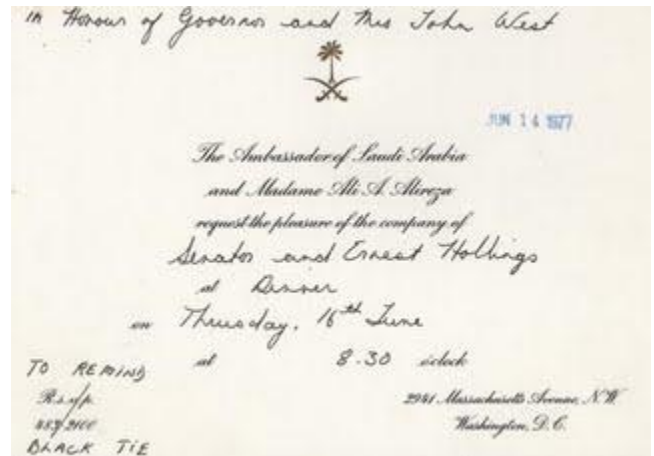 in Honour of Governor and Mrs John West
JUN 14 1977
The Ambassador of Saudi Arabia
and Madame Ali A. Alireza
request the pleasure of the company of
Senator and Ernest Hollings
at Dinner
on Thursday, 16th June
at 8.30 o'clock
TO REMIND
R.s.v.p.
483-2100
BLACK TIE
2941 Massachusetts Avenue, N.W.
Washington, D.C.